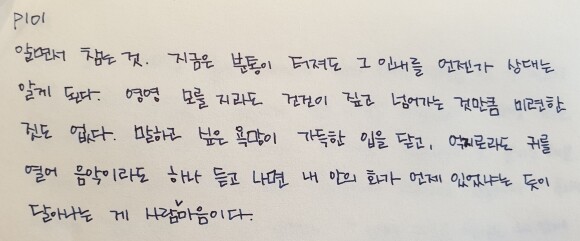 P101
알면서 참는 것. 지금은 분통이 터져도 그 인내를 언젠가 상대는
알게 된다. 영영 모를 지라도 건건이 짚고 넘어가는 것만큼 미련한
짓도 없다. 말하고 싶은 욕망이 가득한 입을 닫고, 억지로라도 귀를
열어 음악이라도 하나 듣고 나면 내 안의 화가 언제 있었냐는 듯이
달아나는 게 사람마음이다.